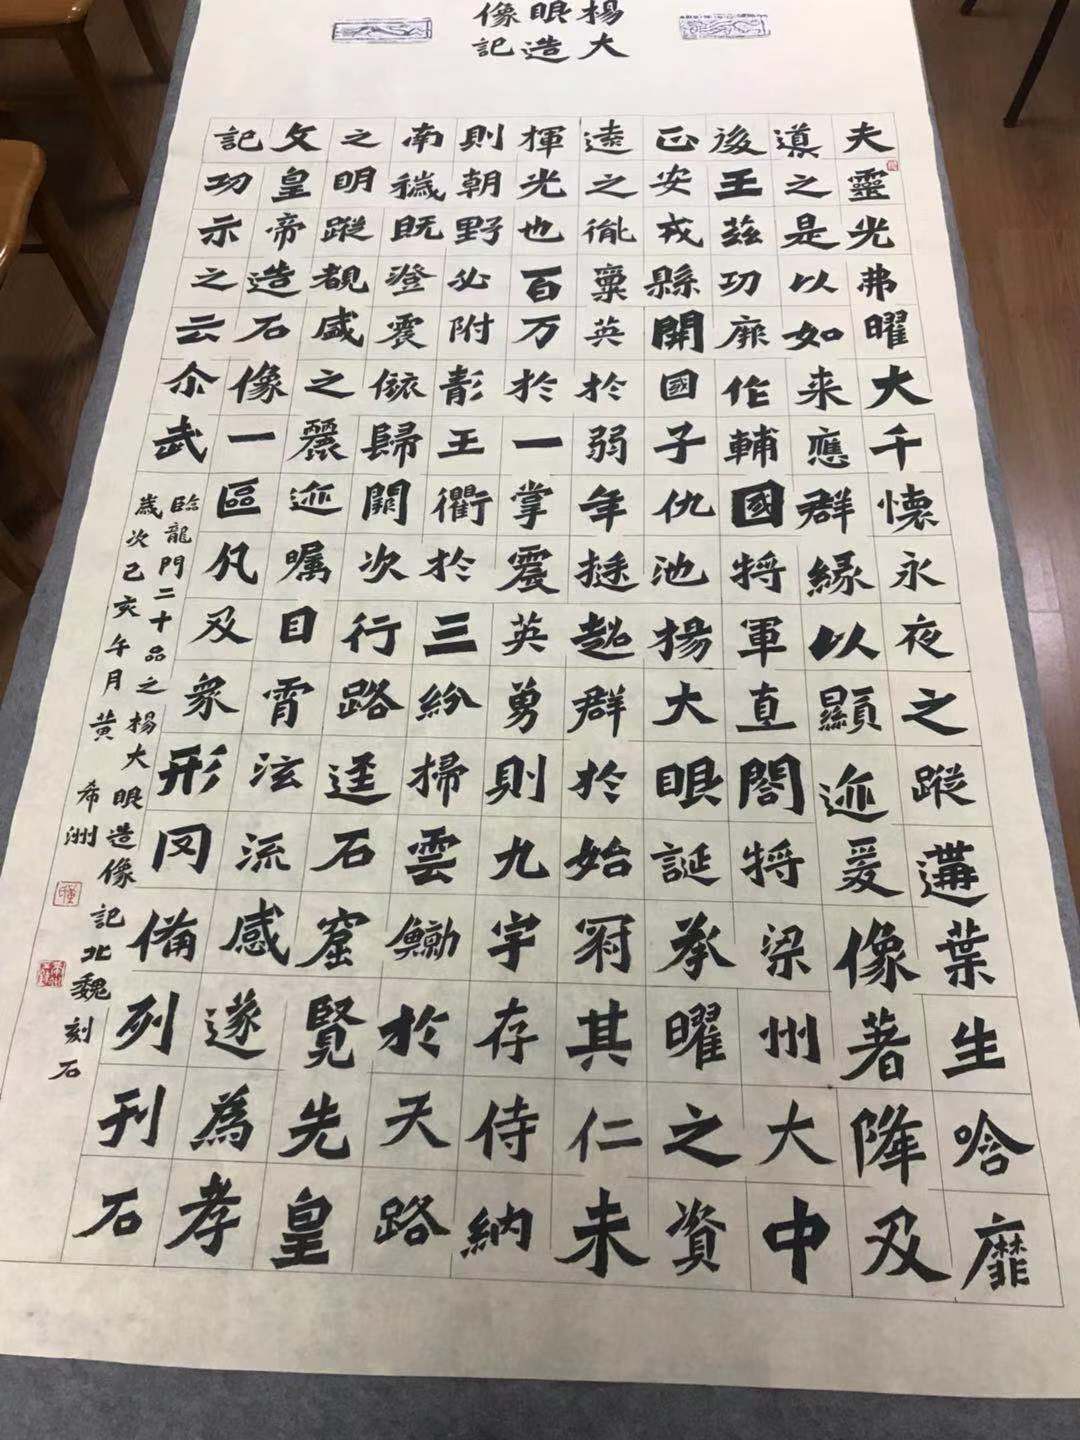 楊大
眼造
像記
夫靈光弗曜大千懷永夜之蹤遘葉生唅靡
導之是以如来應群緣以顯迹爰像著降及
後王茲功厞作輔國将軍直閤将梁州大中
正安戎縣開國子仇池楊大眼誕承曜之資
遠之胤稟英於弱年挺超群於始冠其仁未
揮光也百万於一掌震英勇則九宇存侍納
則朝野必附彰王衢於三紛掃雲鯨於天路
南穢既澄震依歸闕次行路逕石窟覽先皇
之明蹤覩盛之麗迹矚目霄泫流感遂為孝
文皇帝造石像一區凡及衆形罔備列刊石
記功示之云尒武
臨龍門二十品之楊大眼造像記北魏刻石
歲次己亥午月黄希洲